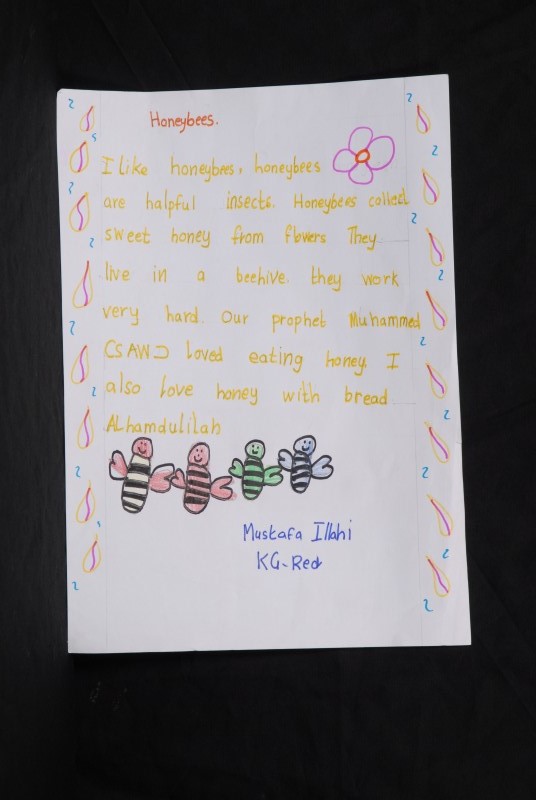 Honeybees.
I like honeybees, honeybees
are halpful insects. Honeybees collect
sweet honey from flowers They
live in a beehive. they work
very hard. Our prophet Muhammed
(SAW) loved eating honey. I
also love honey with bread
ALhamdulilah
Mustafa Illahi
KG-Red